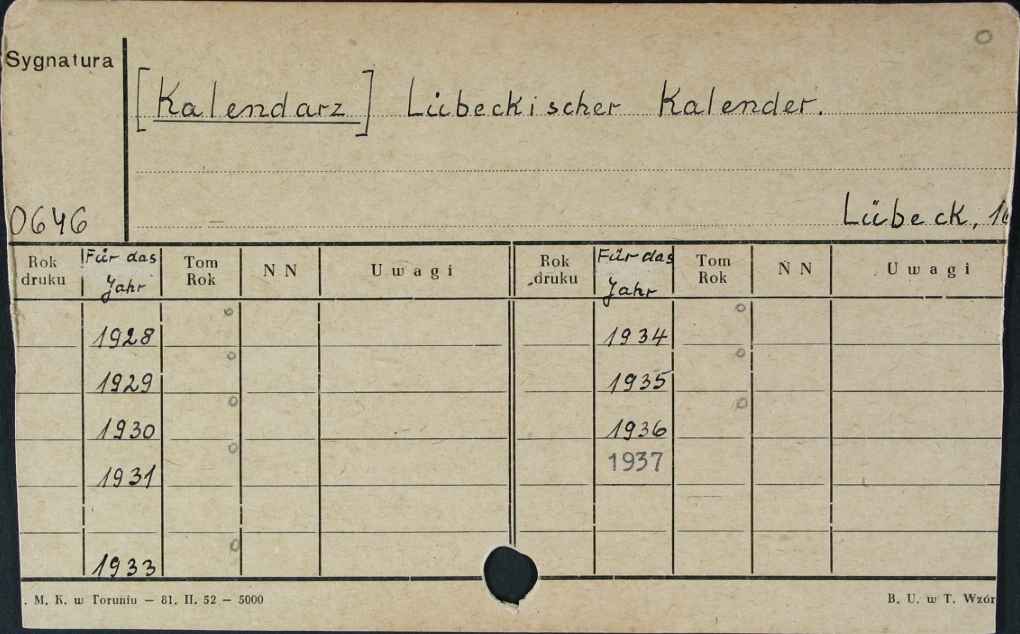 Sygnatura
[Kalendarz] Lübeckischer Kalender.
0646
Lübeck, 16
Rok druku Für das Jahr Tom Rok N N Uwagi Rok druku Für das Jahr Tom Rok N N Uwagi
1928 1934
1929 1935
1930 1936
1931 1937
1933
. M. K. w Toruniu — 81. II. 52 — 5000 B. U. w T. Wzór